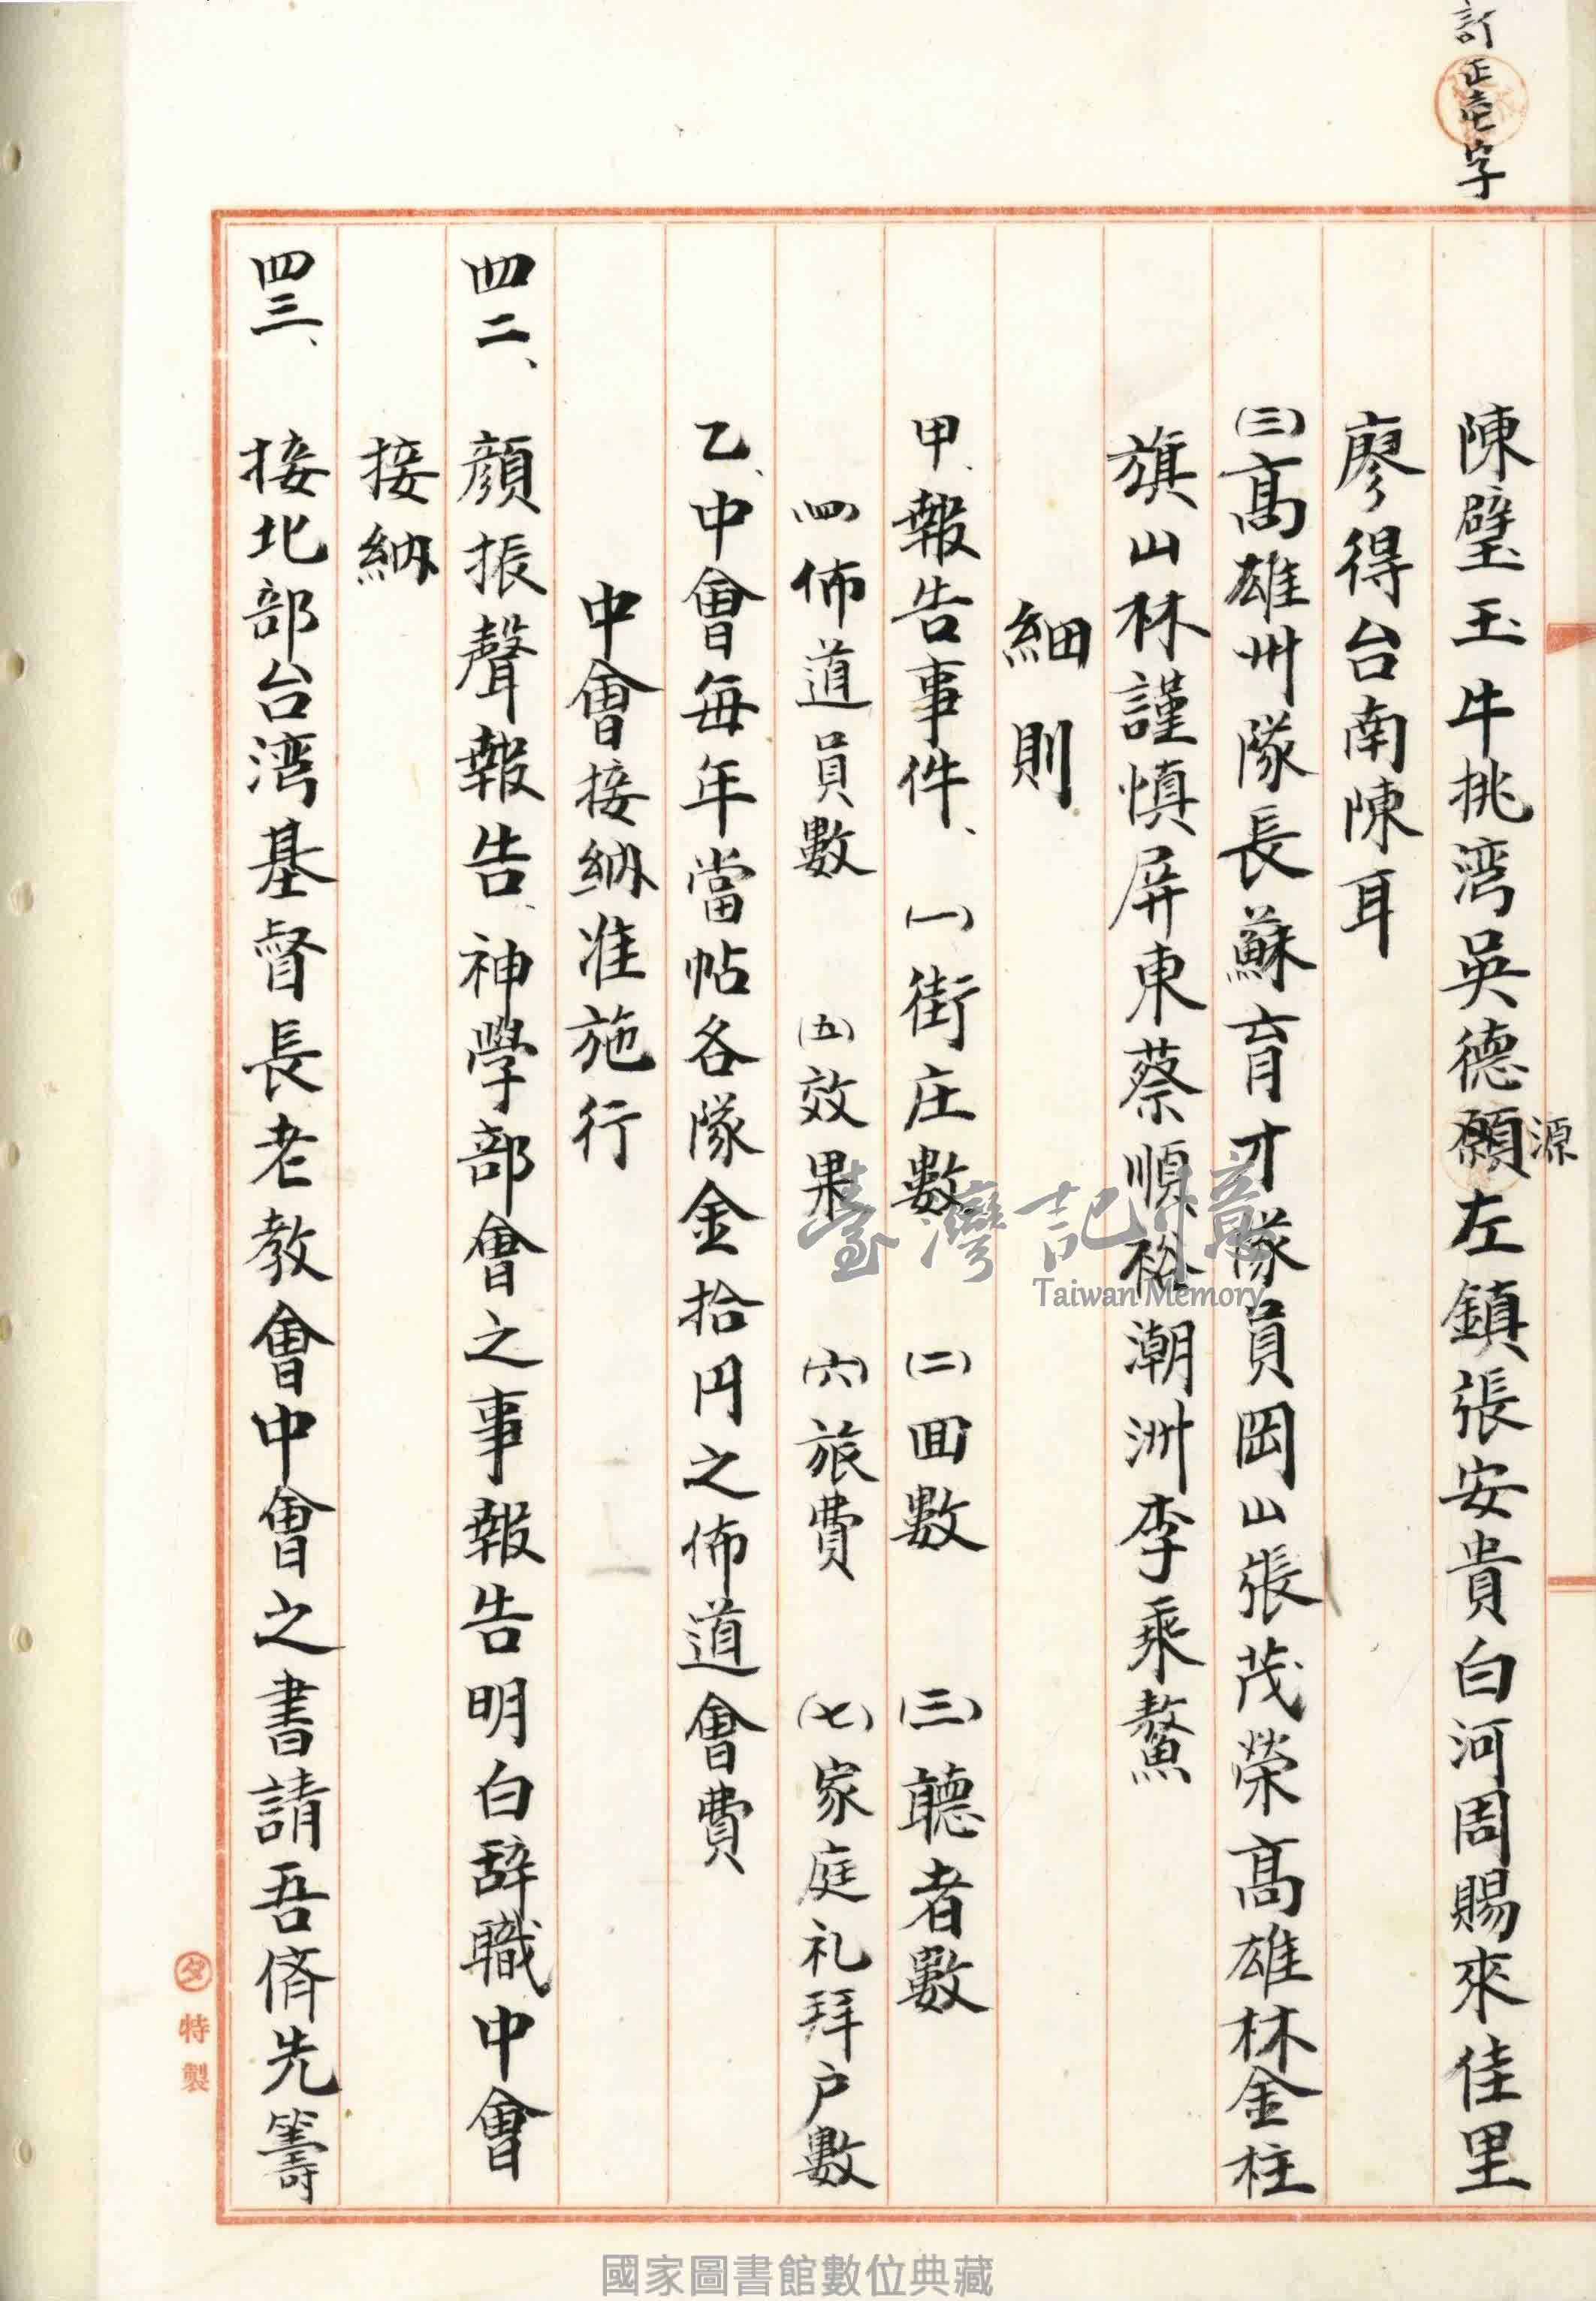 訂正壱字
陳璧玉牛挑湾吳德願左鎮張安貴白河周賜來佳里
源
廖得台南陳耳
㈢高雄州隊長蘇育才隊員岡山張茂榮高雄林金柱
旗山林謹慎屏東蔡順裕潮洲李乘鰲
細則
甲、報告事件、㈠街庄數 ㈡囬數 ㈢聽者數
㈣佈道員數 ㈤效果 ㈥旅費 ㈦家庭礼拜户數
乙、中會每年當帖各隊金拾円之佈道會費
中會接納准施行
四二、顏振聲報告、神學部會之事報告明白辞職中會
接納
四三、接北部台湾基督長老教會中會之書請吾儕先籌
タ特製
臺灣記憶
Taiwan Memory
國家圖書館數位典藏